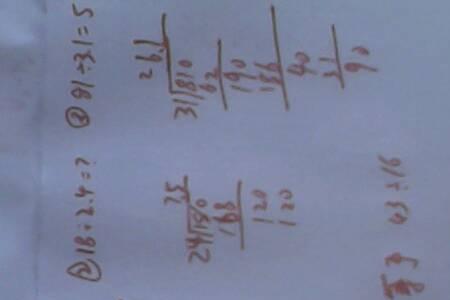 ② 18÷2.4=?
7.5
24)180
168
120
120
③ 81÷3.1=5
26.1
31)810
62
190
186
40
31
90
43÷16